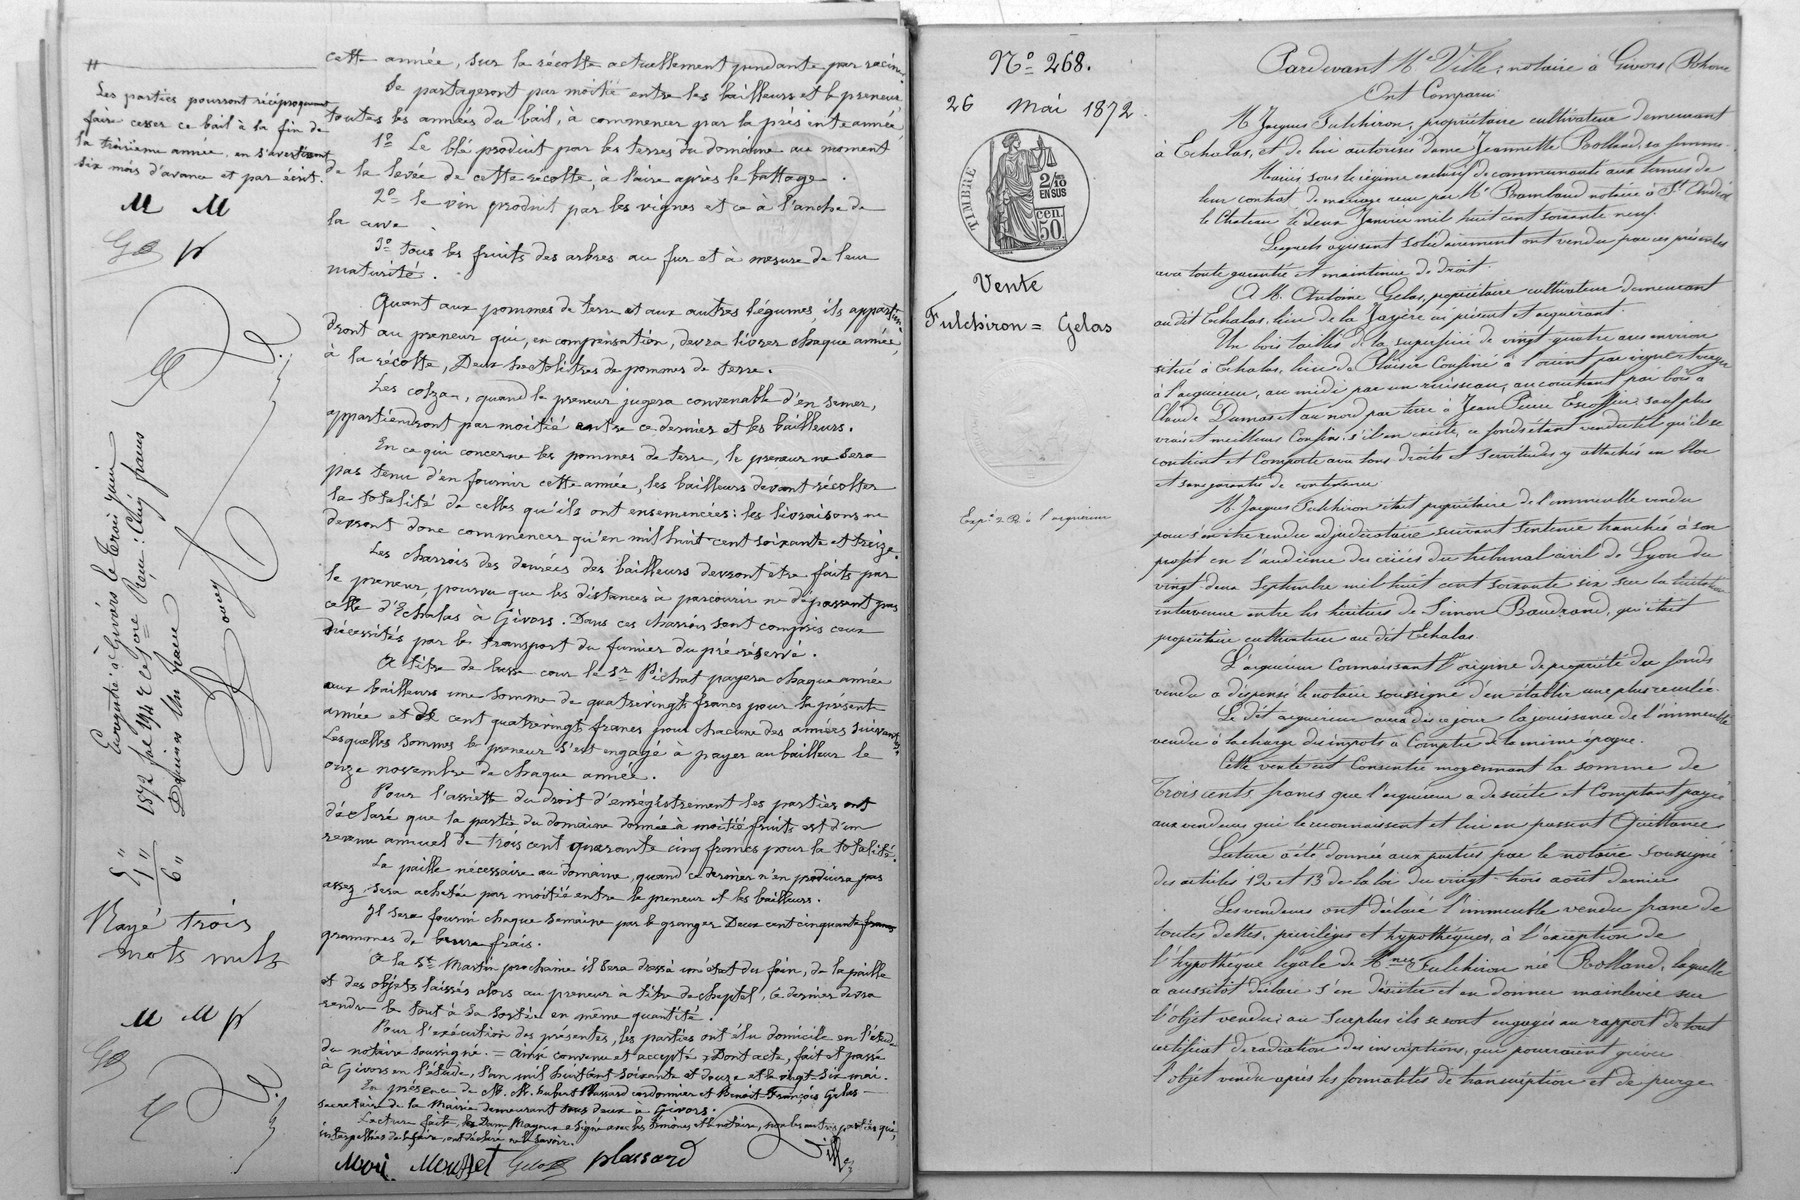 Les parties pourront réciproquement
faire cesser ce bail à la fin de
la troisième année en s'avertissant
six mois d'avance et par écrit.
M M
cette année, sur la récolte actuellement pendante par racine.
Se partageront par moitié entre les bailleurs et le preneur,
toutes les années du bail, à commencer par la présente année
1º Le blé produit par les terres du domaine au moment
de la levée de cette récolte, à l'aire après le battage.
2º le vin produit par les vignes et ce à l'anche de
la cuve.
3º tous les fruits des arbres au fur et à mesure de leur
maturité.
Quant aux pommes de terre et aux autres légumes, ils appartien
dront au preneur qui, en compensation, devra livrer chaque année,
à la récolte, Deux hectolitres de pommes de terre.
Les colzas, quand le preneur jugera convenable d'en semer,
appartiendront par moitié entre ce dernier et les bailleurs.
En ce qui concerne les pommes de terre, le preneur ne sera
pas tenu d'en fournir cette année, les bailleurs devant récolter
la totalité de celles qu'ils ont ensemencées: les livraisons ne
devront donc commencer qu'en mil huit cent soixante et treize.
Les charrois des denrées des bailleurs devront être faits par
le preneur, pourvu que les distances à parcourir ne dépassent pas
celle d'Echalas à Givors. Dans ces charrois sont compris ceux
nécessités par le transport du fumier du pré réservé.
A titre de basse cour le Sr Pichat payera chaque année
aux bailleurs une somme de quatrevingt francs pour la présente
année et de cent quatrevingt francs pour chacune des années suivantes
Lesquelles sommes le preneur s'est engagé à payer au bailleur le
onze novembre de chaque année.
Pour l'assiette du droit d'enregistrement les parties ont
déclaré que la partie du domaine donnée à moitié fruits est d'un
revenu annuel de trois cent quarante cinq francs pour la totalité.
La paille nécessaire au domaine, quand ce dernier n'en produira pas
assez, sera achetée par moitié entre le preneur et les bailleurs.
Il sera fourni chaque semaine par le granger Deux cent cinquante francs
grammes de beurre frais.
A la St Martin prochaine il sera dressé un état du foin, de la paille
et des objets laissés alors au preneur à titre de cheptel, ce dernier devra
rendre le tout à sa sortie en même quantité.
Pour l'exécution des présentes, les parties ont élu domicile en l'étude
du notaire soussigné. = Ainsi convenu et accepté, Dont acte, fait et passé
à Givors en l'étude, l'an mil huit cent soixante et douze et le vingt six mai.
En présence de M. M. Hubert Plassard cordonnier et Benoit François Gelas
secrétaire de la Mairie demeurant tous deux à Givors.
Lecture faite, la Dame Magnin a signé avec les témoins et le notaire, non les autres parties qui,
interpellées de le faire, ont déclaré ne le savoir.
Gelas plassard
Ville
Enregistré à Givors le trois juin
1872
Rayé trois
mots nuls
M M
Nº 268.
26 Mai 1872.
TIMBRE
2/10
EN SUS
50 cen.
Vente
Fulchiron = Gelas
Pardevant Me Ville, notaire à Givors (Rhône
Ont Comparu
M Jacques Fulchiron, propriétaire cultivateur demeurant
à Echalas, et de lui autorisée dame Jeannette Rolland, sa femme.
Mariés sous le régime exclusif de communauté aux termes de
leur contrat de mariage reçu par Me Rambaud notaire à St Andéol
le Chateau le deux Janvier mil huit cent soixante neuf.
Lesquels agissant solidairement ont vendu par ces présentes
avec toute garantie et maintenue de droit
A M. Antoine Gelas, propriétaire cultivateur demeurant
au dit Echalas, lieu de la Jazère ici présent et acquérant.
Un bois taillis de la superficie de vingt quatre ares environ
situé à Echalas, lieu de Plaisir Confiné à l'orient par vigne et verger
à l'acquéreur, au midi par un ruisseau, au couchant par bois à
Claude Dumas et au nord par terre à Jean Pierre Escoffier, sauf plus
vrais et meilleurs Confins, s'il en existe, ce fonds étant vendu tel qu'il se
contient et Comporte avec tous droits et servitudes y attachés en bloc
et sans garantie de contenance
M. Jacques Fulchiron était propriétaire de l'immeuble vendu
pour s'en être rendu adjudicataire suivant sentence tranchée à son
profit en l'audience des criées du tribunal civil de Lyon du
vingt deux Septembre mil huit cent soixante six sur la licitation
intervenue entre les héritiers de Simon Baudrand, qui était
propriétaire cultivateur au dit Echalas
L'acquéreur connaissant l'origine de propriété du fonds
vendu a dispensé le notaire soussigné d'en établir une plus reculée.
Le dit acquéreur aura dès ce jour la jouissance de l'immeuble
vendu à la charge des impots à Compter de la même époque.
Cette vente est Consentie moyennant la somme de
Trois cents francs que l'acquéreur a de suite et Comptant payée
aux vendeurs qui le reconnaissent et lui en passent Quittance
Lecture a été donnée aux parties par le notaire soussigné
des articles 12 et 13 de la loi du vingt trois août dernier
Les vendeurs ont déclaré l'immeuble vendu franc de
toutes dettes, privilèges et hypothèques, à l'exception de
l'hypothèque légale de Mme Fulchiron née Rolland, laquelle
a aussitôt déclaré s'en désister et en donner mainlevée sur
l'objet vendu; au surplus ils se sont engagés au rapport de tout
certificat de radiation des inscriptions, qui pourraient grever
l'objet vendu après les formalités de transcription et de purge